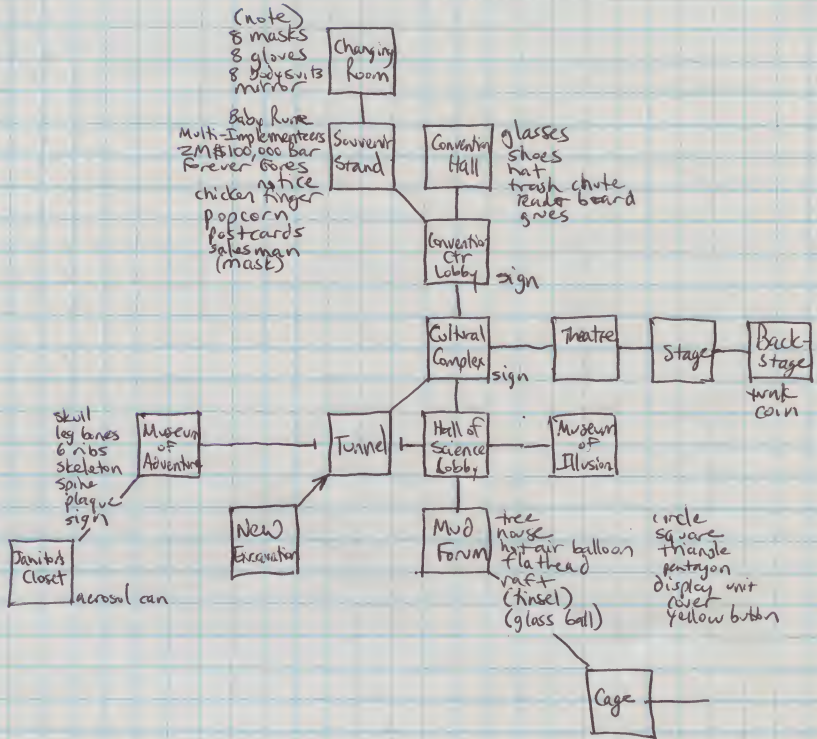 (note)
8 masks
8 gloves
8 bodysuits
mirror
Changing
Room
Baby Rune
Multi-Implementeers
ZM$100,000 Bar
Forever Gores
notice
chicken finger
popcorn
postcards
salesman
(mask)
Souvenir
Stand
Convention
Hall
glasses
shoes
hat
trash chute
reader board
grues
Convention
Ctr
Lobby
sign
Cultural
Complex
sign
Theatre
Stage
Back-
Stage
trunk
coin
skull
leg bones
6 ribs
skeleton
spine
plaque
sign
Museum
of
Adventure
Tunnel
Hall of
Science
Lobby
Museum
of
Illusion
Janitor's
Closet
aerosol can
New
Excavation
Mud
Forum
tree
house
hot air balloon
flathead
raft
(tinsel)
(glass ball)
circle
square
triangle
pentagon
display unit
rover
yellow button
Cage